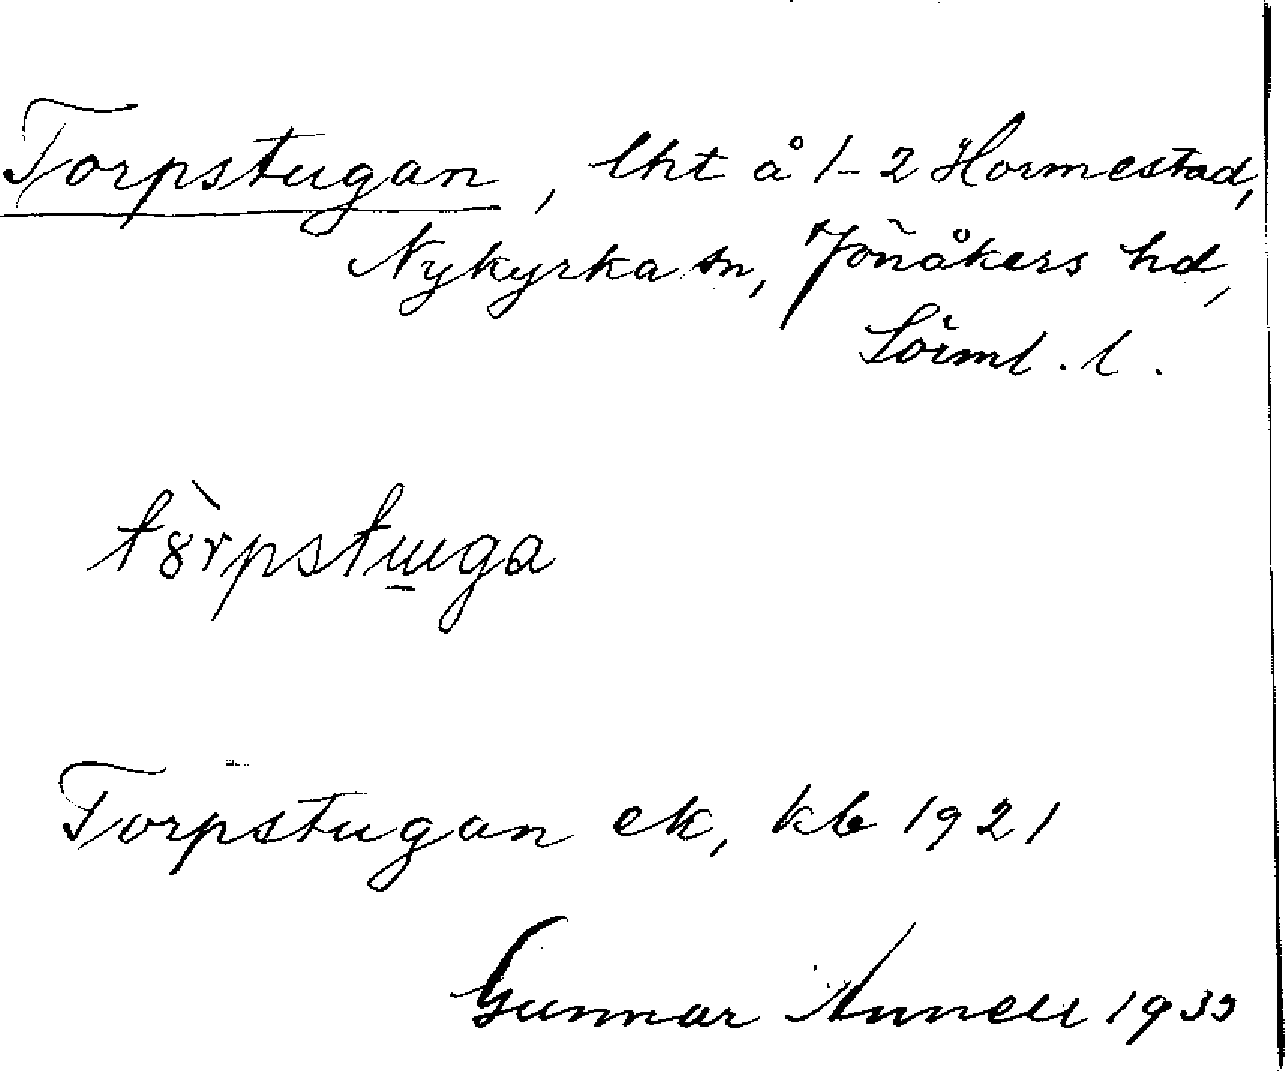 Torpstugan, lht å 1-2 Hormestad,
Nykyrka sn, Jönåkers hd,
Sörml. l.
tòrpstuga
Torpstugan ek, kb 1921
Gunnar Annell 1933